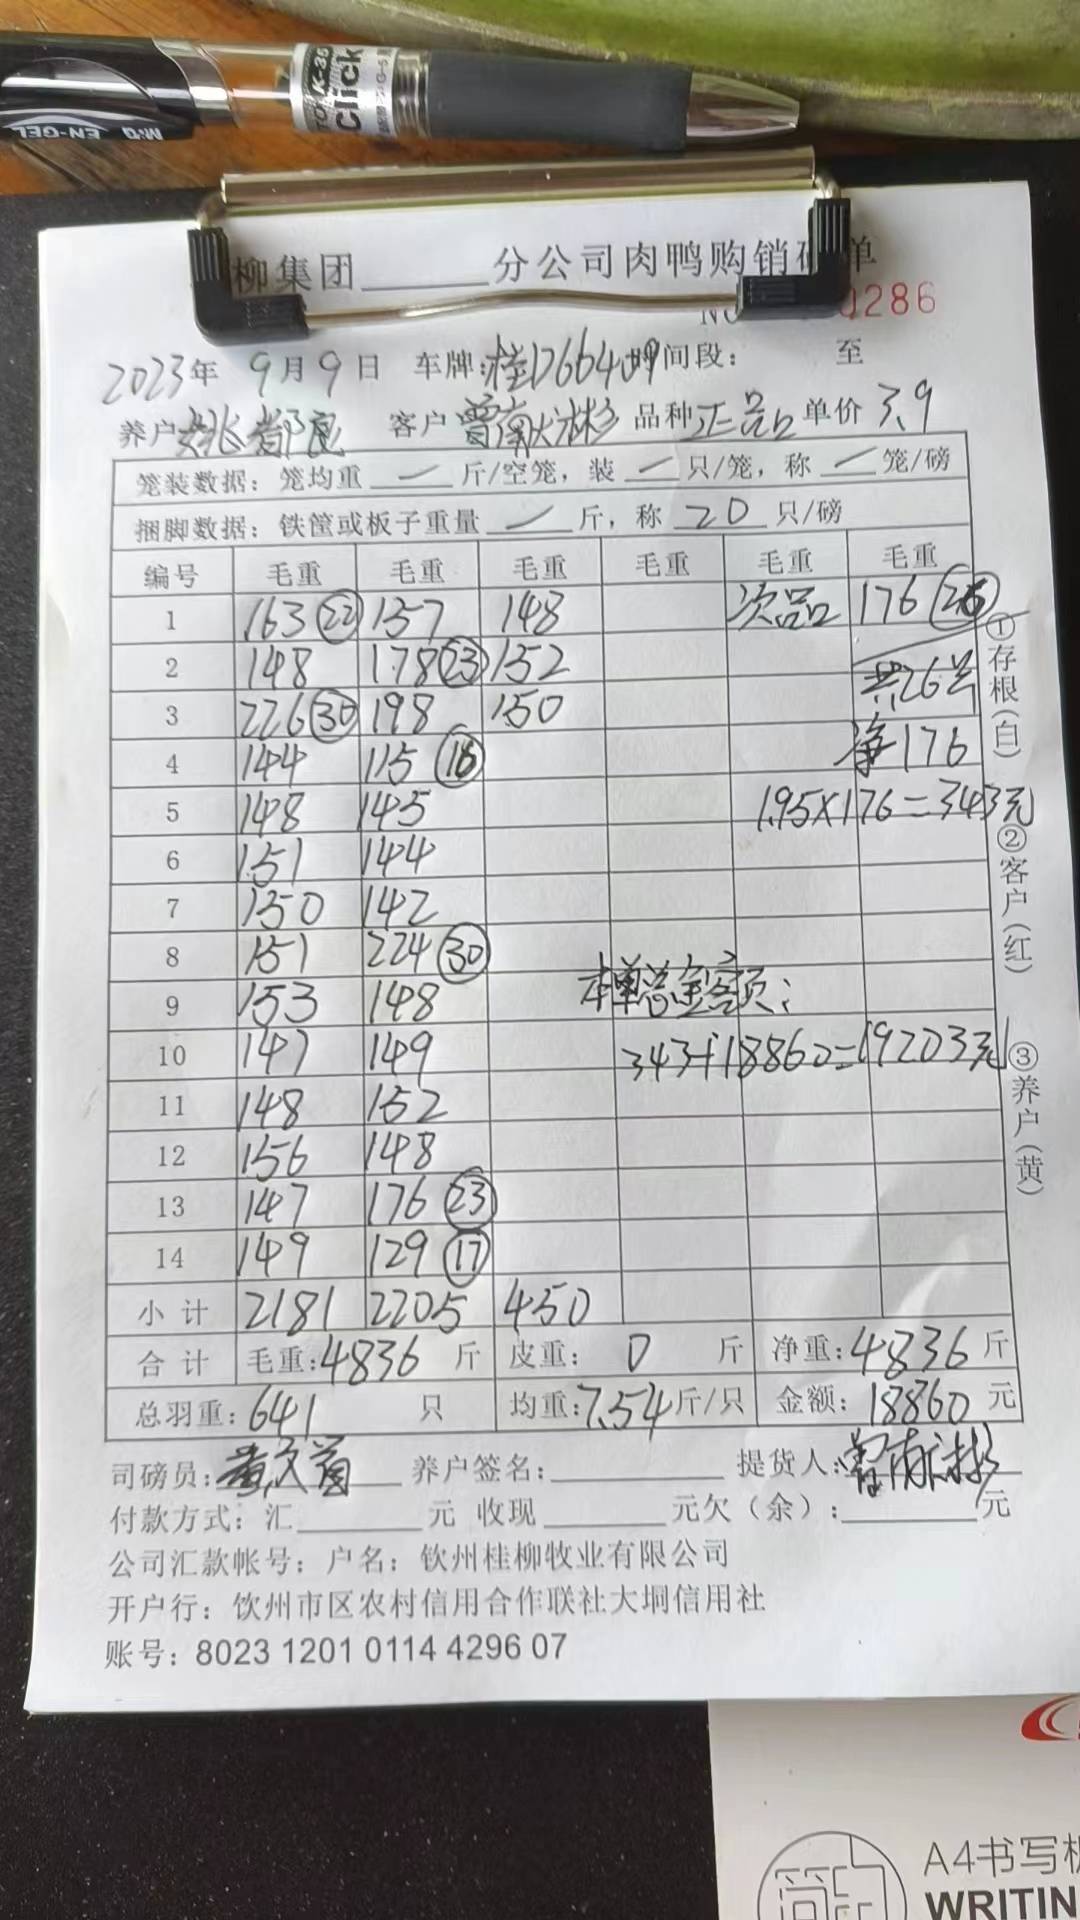 TOP K-35
Click
M&G EN-GEL
柳集团______分公司肉鸭购销磅单
NO 0286
2023年 9月9日 车牌:桂D66409 时间段: 至
养户 姚都良 客户 曾南大林杉 品种 正品 单价 3.9
笼装数据: 笼均重 一 斤/空笼, 装 一 只/笼, 称 一 笼/磅
捆脚数据: 铁筐或板子重量 一 斤, 称 20 只/磅
编号 毛重 毛重 毛重 毛重 毛重 毛重
1 163 (22) 157 148 次品 176 (26)
2 148 178 (23) 152 共26只
3 226 (30) 198 150 净176
4 144 115 (18)
5 148 145 1.95×176=343元
6 151 144
7 150 142
8 151 224 (30)
9 153 148 本单总金额:
10 147 149 343+18860=19203元
11 148 152
12 156 148
13 147 176 (23)
14 149 129 (17)
小计 2181 2205 450
合计 毛重:4836 斤 皮重: 0 斤 净重:4836 斤
总羽重:641 只 均重:7.54斤/只 金额:18860 元
司磅员: 养户签名: 提货人:
付款方式: 汇______元 收现______元欠(余):______元
公司汇款帐号: 户名: 钦州桂柳牧业有限公司
开户行: 饮州市区农村信用合作联社大垌信用社
账号: 8023 1201 0114 4296 07
①存根(白) ②客户(红) ③养户(黄)
A4书写
WRITIN